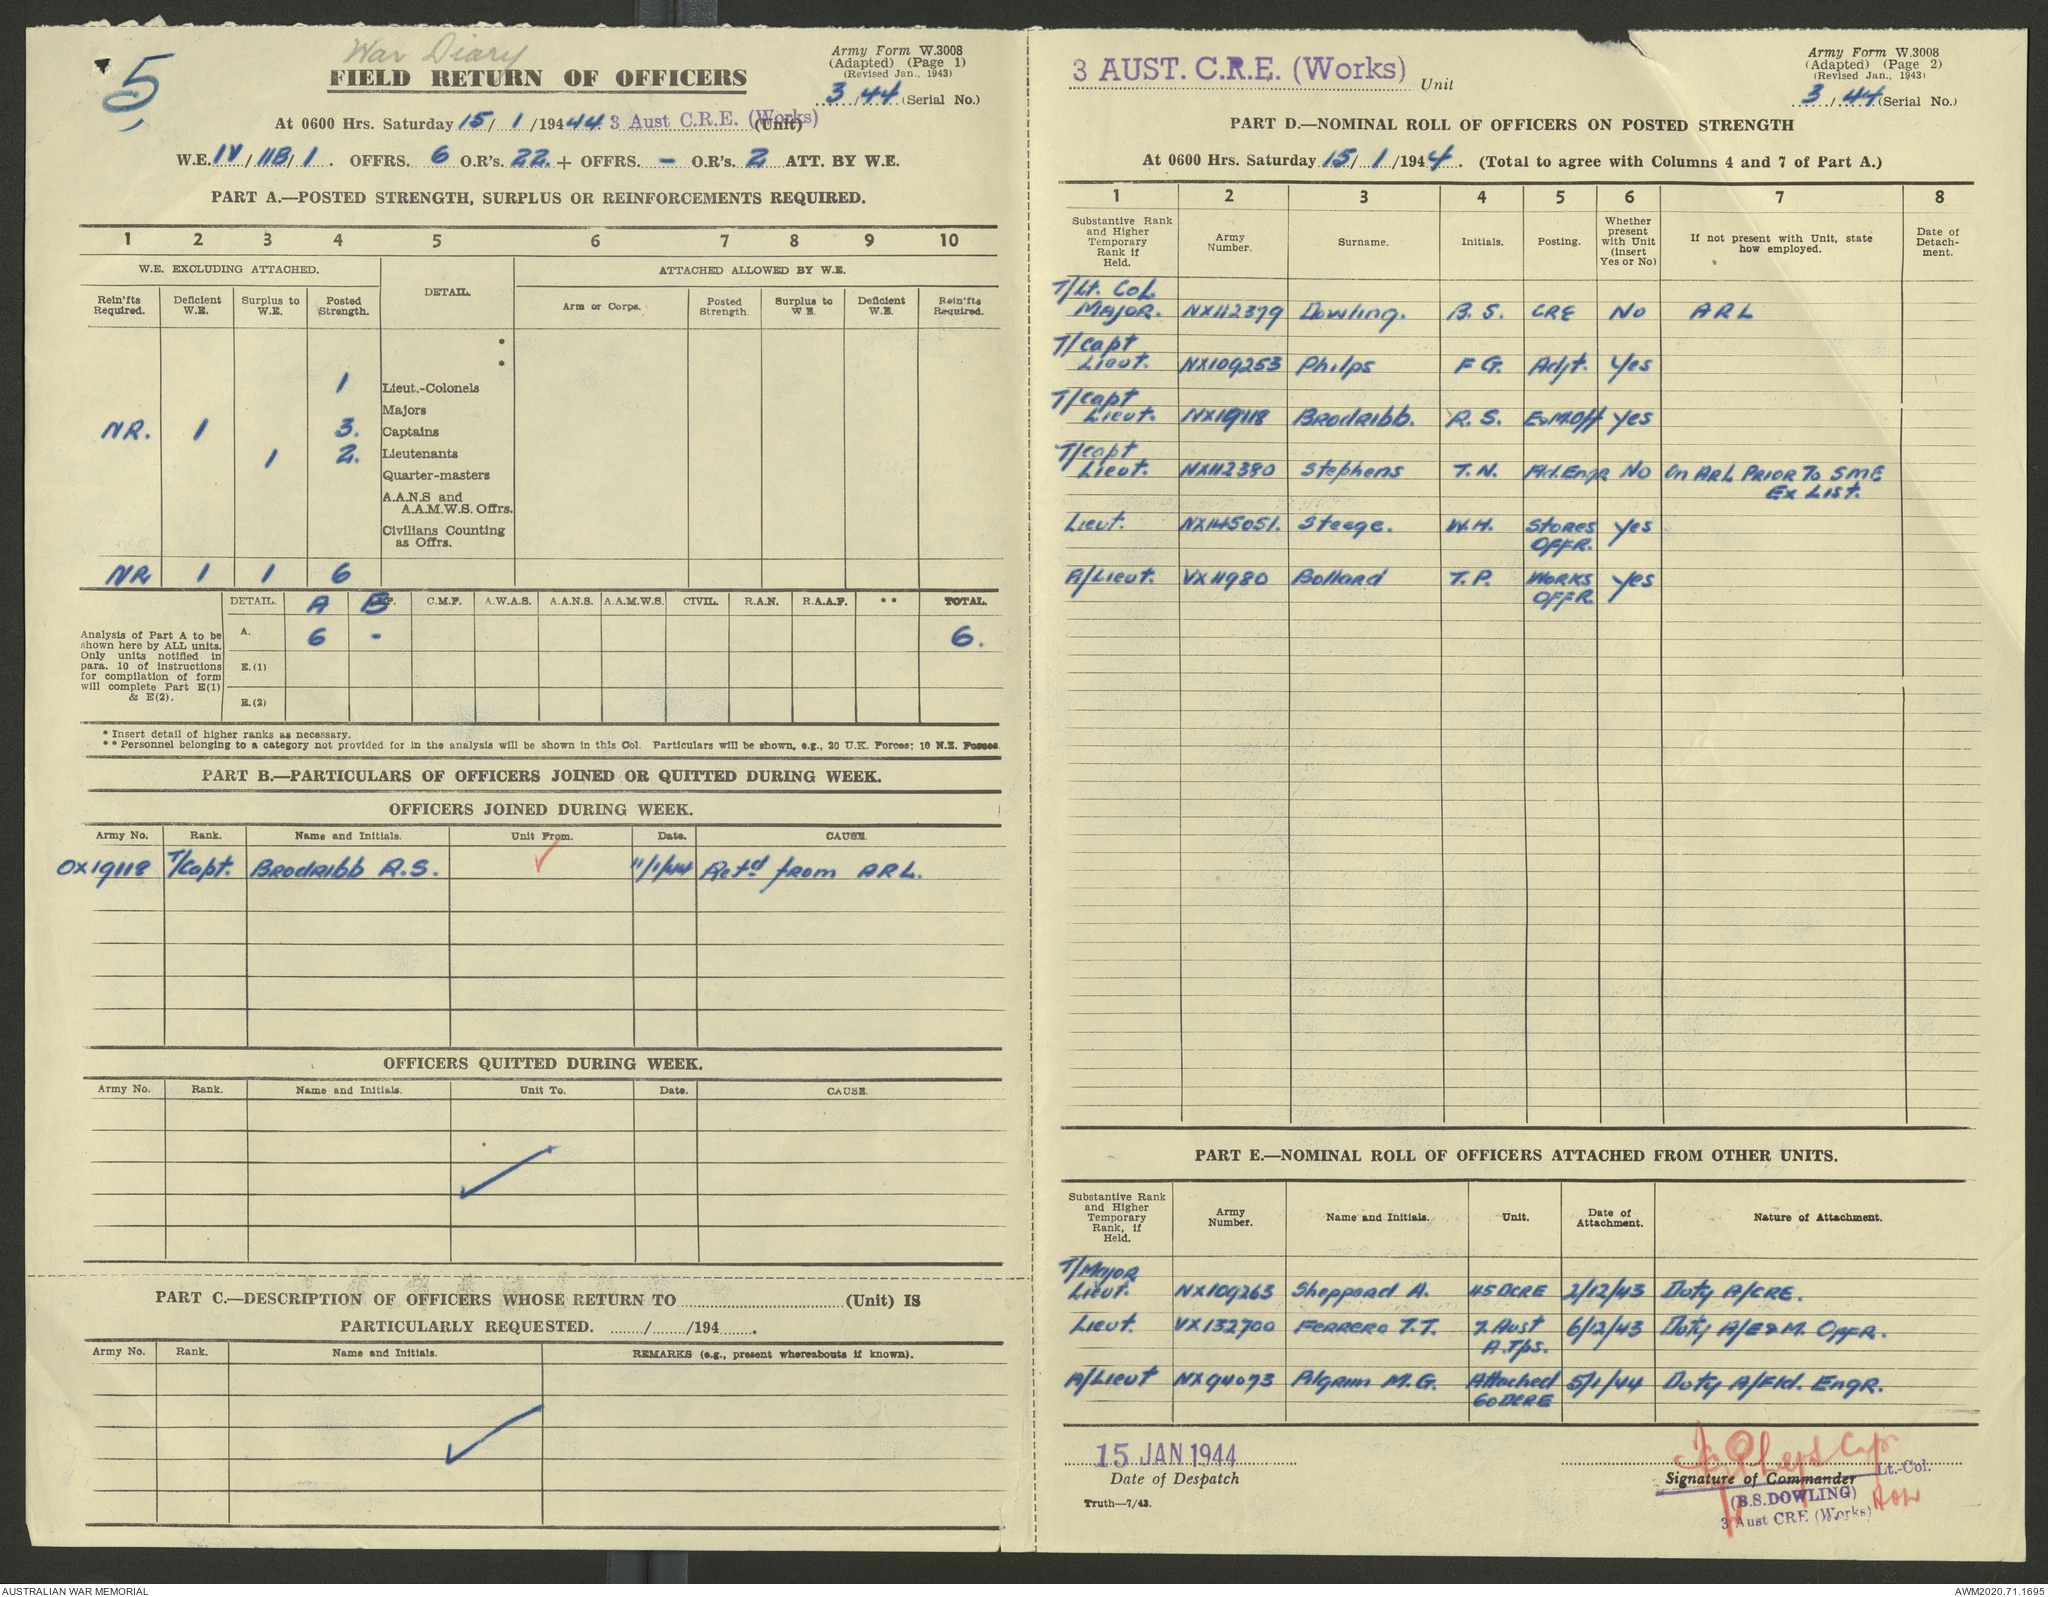 5
War Diary
FIELD RETURN OF OFFICERS
Army Form W.3008
(Adapted) (Page 1)
(Revised Jan., 1943)
3/44 (Serial No.)
At 0600 Hrs. Saturday 15/1/1944 44. 3 Aust C.R.E. (Works) (Unit)
W.E. IV/11B/1. OFFRS. 6 O.R's. 22. + OFFRS. - O.R's. 2 ATT. BY W.E.
PART A.—POSTED STRENGTH, SURPLUS OR REINFORCEMENTS REQUIRED.
1 2 3 4 5 6 7 8 9 10
W.E. EXCLUDING ATTACHED. DETAIL. ATTACHED ALLOWED BY W.E.
Rein'fts Required. Deficient W.E. Surplus to W.E. Posted Strength. Arm or Corps. Posted Strength. Surplus to W.E. Deficient W.E. Rein'fts Required.
*
*
1 Lieut.-Colonels
Majors
NR. 1 3. Captains
1 2. Lieutenants
Quarter-masters
A.A.N.S and
A.A.M.W.S. Offrs.
Civilians Counting
as Offrs.
NR 1 1 6
DETAIL. A B C.M.F. A.W.A.S. A.A.N.S. A.A.M.W.S. CIVIL. R.A.N. R.A.A.F. ** TOTAL.
Analysis of Part A to be shown here by ALL units. Only units notified in para. 10 of instructions for compilation of form will complete Part E(1) & E(2).
A. 6 - 6.
E.(1)
E.(2)
* Insert detail of higher ranks as necessary.
** Personnel belonging to a category not provided for in the analysis will be shown in this Col. Particulars will be shown, e.g., 20 U.K. Forces; 10 N.Z. Forces.
PART B.—PARTICULARS OF OFFICERS JOINED OR QUITTED DURING WEEK.
OFFICERS JOINED DURING WEEK.
Army No. Rank. Name and Initials. Unit From. Date. CAUSE.
OX19118 T/Capt. Brodribb R.S. 11/1/44 Retd from ARL.
OFFICERS QUITTED DURING WEEK.
Army No. Rank. Name and Initials. Unit To. Date. CAUSE.
PART C.—DESCRIPTION OF OFFICERS WHOSE RETURN TO (Unit) IS
PARTICULARLY REQUESTED. ....../....../194......
Army No. Rank. Name and Initials. REMARKS (e.g., present whereabouts if known).
3 AUST. C.R.E. (Works) Unit
Army Form W.3008
(Adapted) (Page 2)
(Revised Jan., 1943)
3/44 (Serial No.)
PART D.—NOMINAL ROLL OF OFFICERS ON POSTED STRENGTH
At 0600 Hrs. Saturday 15/1/1944. (Total to agree with Columns 4 and 7 of Part A.)
1 2 3 4 5 6 7 8
Substantive Rank and Higher Temporary Rank if Held. Army Number. Surname. Initials. Posting. Whether present with Unit (Insert Yes or No) If not present with Unit, state how employed. Date of Detach-ment.
T/Lt. Col.
Major. NX112379 Dowling. B.S. CRE No ARL
T/Capt
Lieut. NX109253 Philps F G. Adjt. Yes
T/Capt
Lieut. NX19118 Brodribb. R.S. E&M.Off Yes
T/Capt
Lieut. NX112380 Stephens T.N. Fld.Engr No On ARL PRIOR To SME
Ex List.
Lieut. NX145051. Steege. W.H. Stores Yes
OFFR.
A/Lieut. VX11980 Bollard T.P. Works Yes
OFFR.
PART E.—NOMINAL ROLL OF OFFICERS ATTACHED FROM OTHER UNITS.
Substantive Rank and Higher Temporary Rank, if Held. Army Number. Name and Initials. Unit. Date of Attachment. Nature of Attachment.
T/Major
Lieut. NX109263 Sheppard A. 45DCRE 2/12/43 Duty A/CRE.
Lieut. VX132700 Ferrero T.T. 7. Aust 6/12/43 Duty A/E&M. OFFR.
A.Tps.
A/Lieut NX94073 Pilgrim M.G. Attached 5/1/44 Duty A/Fld. Engr.
60DCRE
15 JAN 1944
Date of Despatch
Truth—7/43.
Signature of Commander Lt.-Col.
(B.S.DOWLING)
3 Aust CRE (Works)
AUSTRALIAN WAR MEMORIAL
AWM2020.71.1695